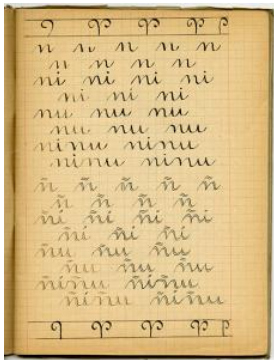 n n n n n
n n n n
ni ni ni ni
ni ni ni
nu nu nu
nu nu nu
ninu ninu
ninu ninu
ñ ñ ñ ñ ñ
ñ ñ ñ ñ
ñi ñi ñi ñi
ñi ñi ñi
ñu ñu ñu
ñu ñu ñu
ñiñu ñiñu
ñiñu ñiñu